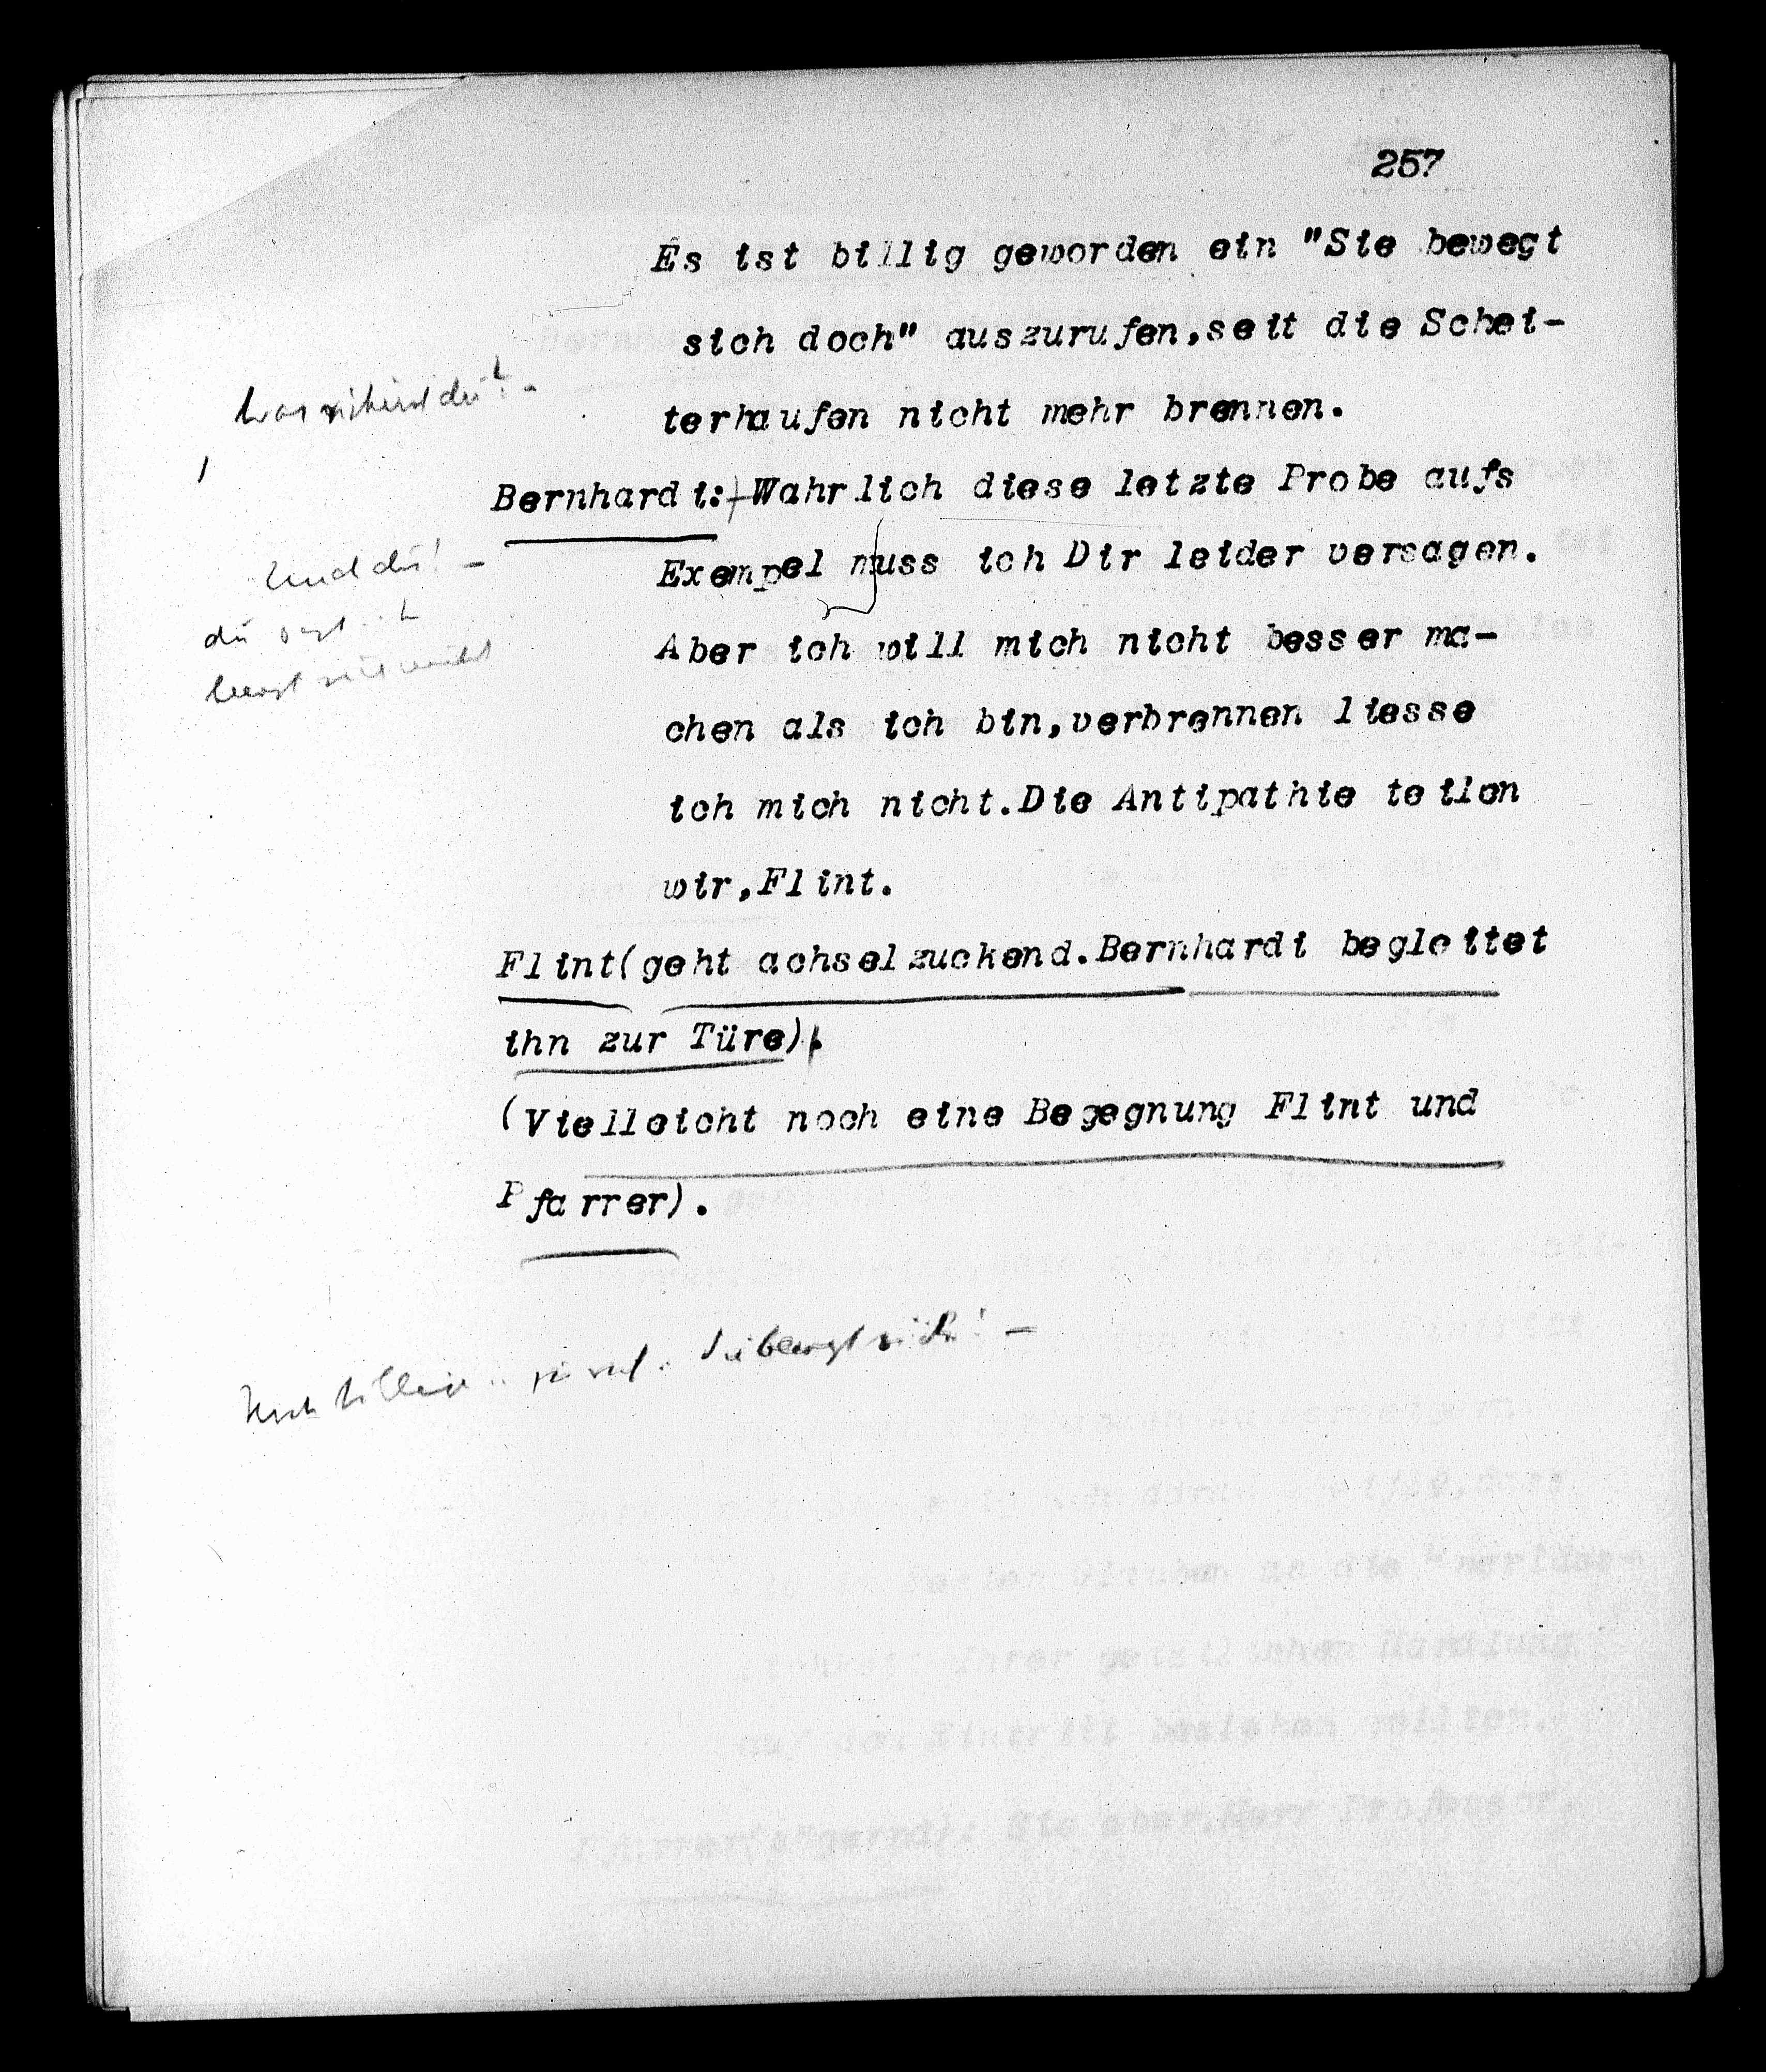 257
Es ist billig geworden ein "Sie bewegt
sich doch" auszurufen,seit die Schei-
terhaufen nicht mehr brennen.
Bernhardi: Wahrlich diese letzte Probe aufs
Exempel muss ich Dir leider versagen.
Aber ich will mich nicht besser ma-
chen als ich bin,verbrennen liesse
ich mich nicht.Die Antipathie teilen
wir,Flint.
Flint(geht achselzuckend.Bernhardi begleitet
ihn zur Türe).
(Vielleicht noch eine Begegnung Flint und
Pfarrer).
Und du! –
du